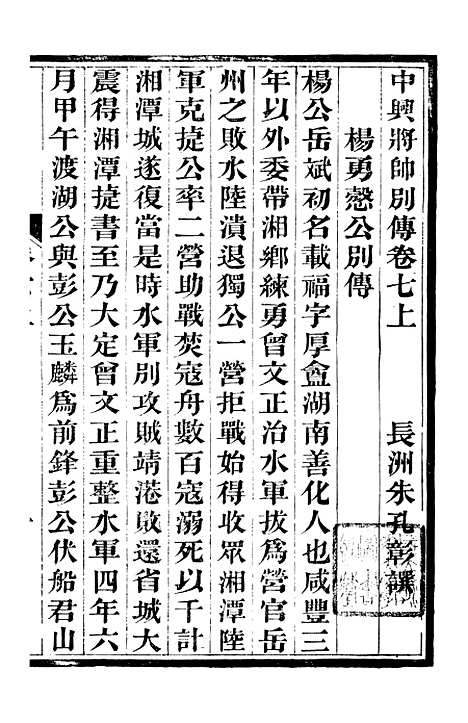 中興將帥別傳卷七上　長洲朱孔彰譔
楊勇慤公別傳
楊公岳斌初名載福字厚盦湖南善化人也咸豐三
年以外委帶湘鄉練勇曾文正治水軍拔爲營官岳
州之敗水陸潰退獨公一營拒戰始得收眾湘潭陸
軍克捷公率二營助戰焚寇舟數百寇溺死以千計
湘潭城遂復當是時水軍別攻賊靖港敗還省城大
震得湘潭捷書至乃大定曾文正重整水軍四年六
月甲午渡湖公與彭公玉麟爲前鋒彭公伏船君山